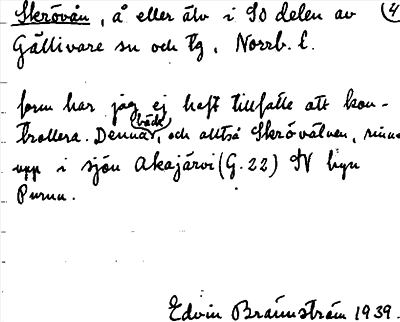 Skröván, å eller älv i SO delen av (4
Gällivare sn och tg, Norrb. l.
som har jag ej haft tillfälle att kon-
trollera. Denna, och alltså Skrövälven, rinner
bäck
upp i sjön Akajärvi (G.22) SV byn
Purnu.
Edvin Brännström 1939.